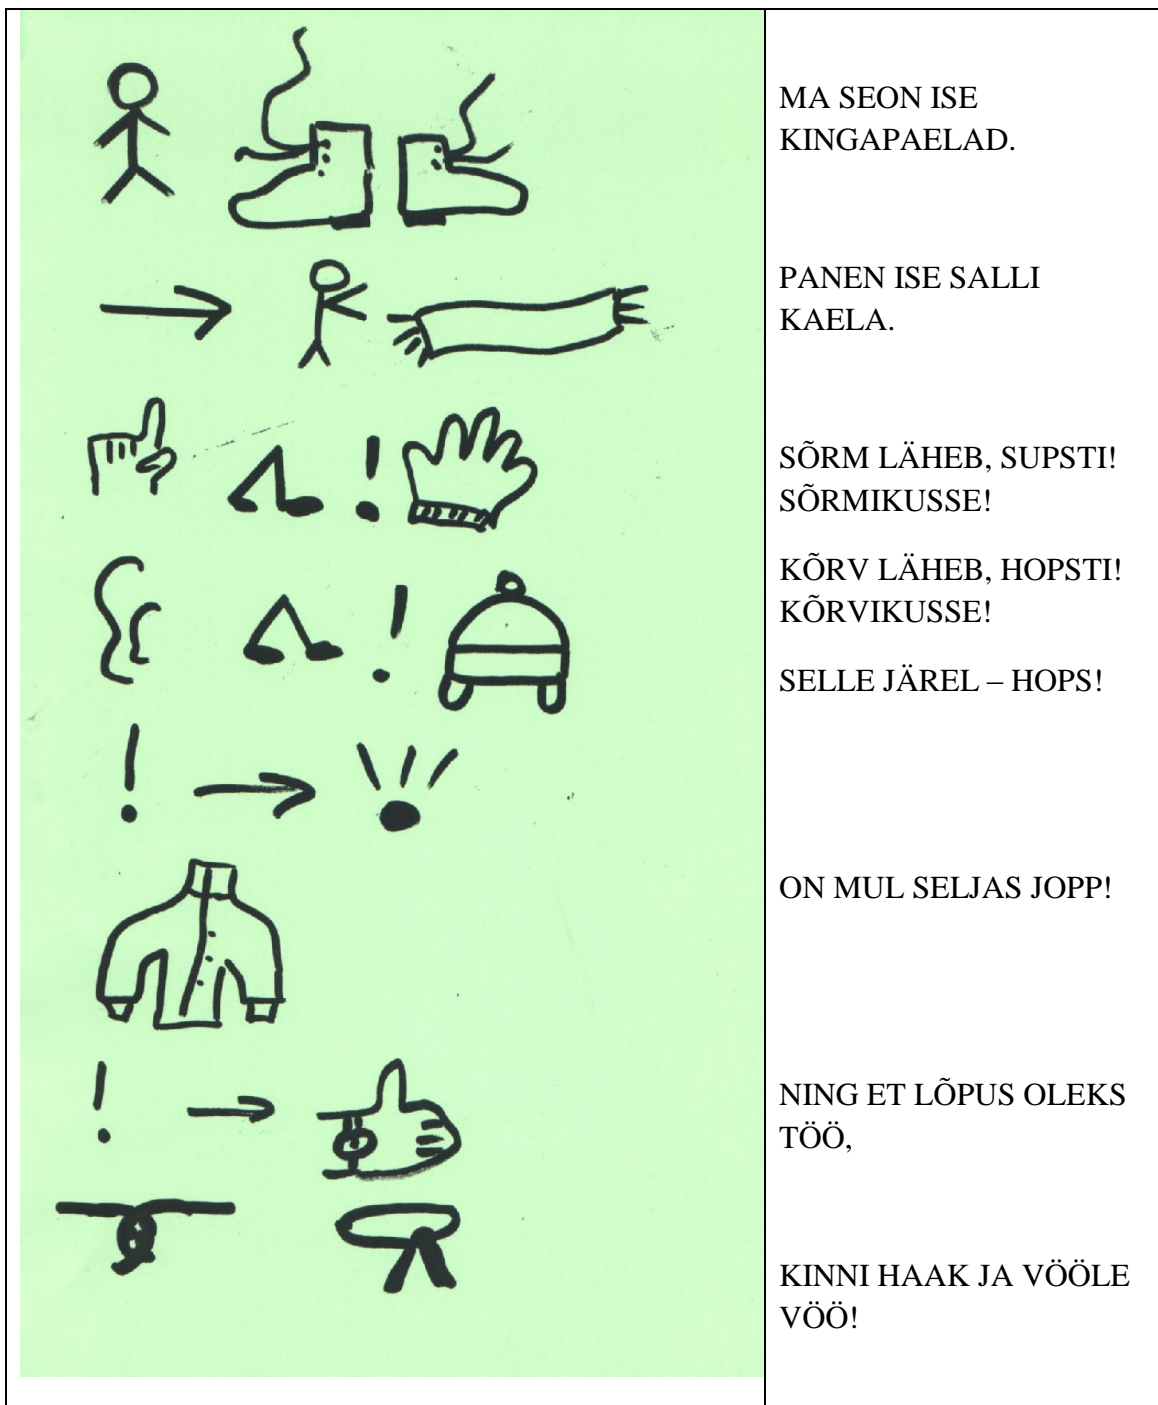 MA SEON ISE
KINGAPAELAD.
PANEN ISE SALLI
KAELA.
SÕRM LÄHEB, SUPSTI!
SÕRMIKUSSE!
KÕRV LÄHEB, HOPSTI!
KÕRVIKUSSE!
SELLE JÄREL – HOPS!
ON MUL SELJAS JOPP!
NING ET LÕPUS OLEKS
TÖÖ,
KINNI HAAK JA VÖÖLE
VÖÖ!